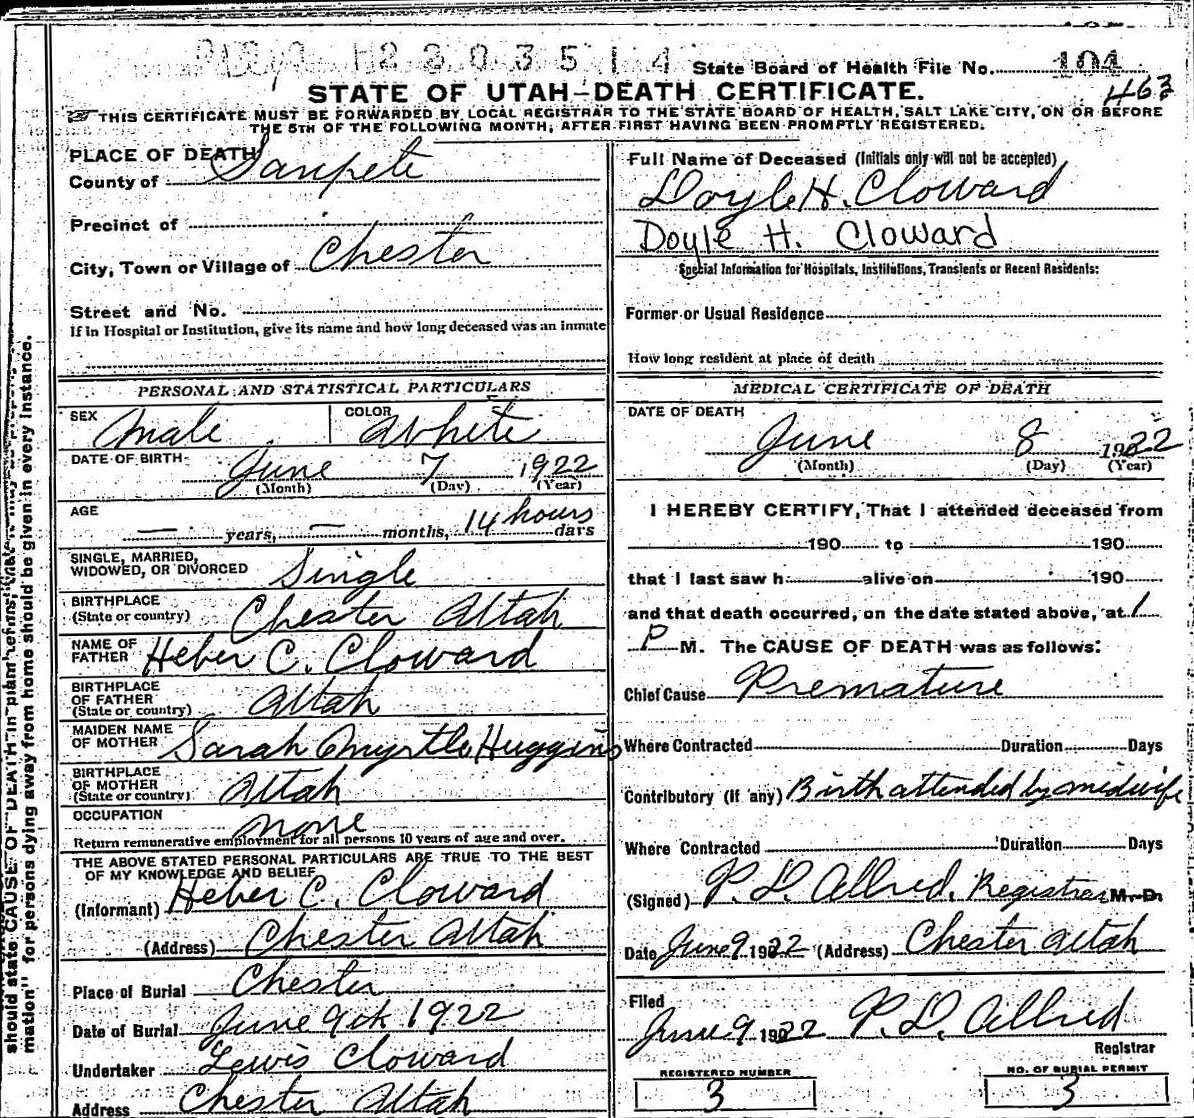 1 2 3 0 3 5 1 4
State Board of Health File No. 104
463
STATE OF UTAH—DEATH CERTIFICATE.
THIS CERTIFICATE MUST BE FORWARDED BY LOCAL REGISTRAR TO THE STATE BOARD OF HEALTH, SALT LAKE CITY, ON OR BEFORE
THE 5TH OF THE FOLLOWING MONTH, AFTER FIRST HAVING BEEN PROMPTLY REGISTERED.
PLACE OF DEATH
County of Sanpete
Precinct of
City, Town or Village of Chester
Street and No.
If in Hospital or Institution, give its name and how long deceased was an inmate
Full Name of Deceased (Initials only will not be accepted)
Doyle H. Cloward
Doyle H. Cloward
Special Information for Hospitals, Institutions, Transients or Recent Residents:
Former or Usual Residence
How long resident at place of death
PERSONAL AND STATISTICAL PARTICULARS
SEX Male COLOR White
DATE OF BIRTH June 7 1922
(Month) (Day) (Year)
AGE
— years, — months, 14 hours days
SINGLE, MARRIED,
WIDOWED, OR DIVORCED Single
BIRTHPLACE
(State or country) Chester Utah
NAME OF
FATHER Heber C. Cloward
BIRTHPLACE
OF FATHER
(State or country) Utah
MAIDEN NAME
OF MOTHER Sarah Myrtle Huggins
BIRTHPLACE
OF MOTHER
(State or country) Utah
OCCUPATION none
Return remunerative employment for all persons 10 years of age and over.
THE ABOVE STATED PERSONAL PARTICULARS ARE TRUE TO THE BEST
OF MY KNOWLEDGE AND BELIEF
(Informant) Heber C. Cloward
(Address) Chester Utah
Place of Burial Chester
Date of Burial June 9th 1922
Undertaker Lewis Cloward
Address Chester Utah
MEDICAL CERTIFICATE OF DEATH
DATE OF DEATH
June 8 1922
(Month) (Day) (Year)
I HEREBY CERTIFY, That I attended deceased from
190 to 190
that I last saw h alive on 190
and that death occurred, on the date stated above, at 1
P M. The CAUSE OF DEATH was as follows:
Chief Cause Premature
Where Contracted Duration Days
Contributory (if any) Birth attended by midwife
Where Contracted Duration Days
(Signed) P. D. Allred, Registrar M. D.
Date June 9 1922 (Address) Chester Utah
Filed
June 9 1922 P. D. Allred
Registrar
REGISTERED NUMBER
3
NO. OF BURIAL PERMIT
3
should state CAUSE OF DEATH in plain terms, that it may be
mation" for persons dying away from home should be given in every instance.